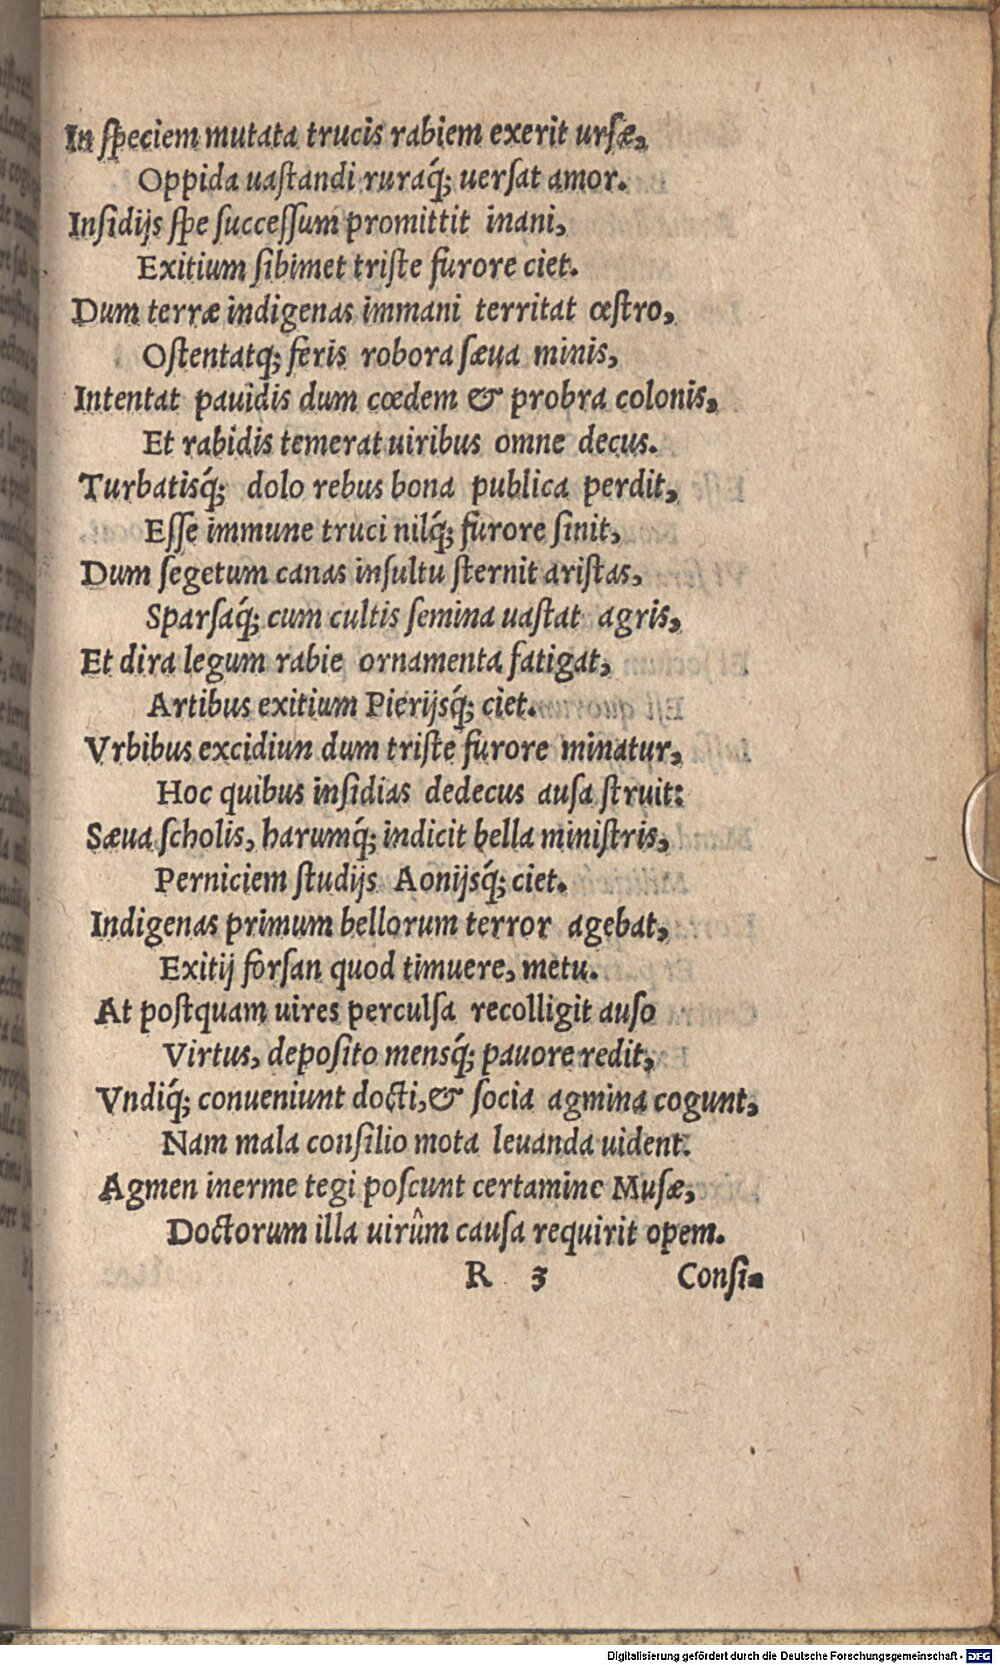 In ſpeciem mutata trucis rabiem exerit urſæ,
Oppida uaſtandi ruraq́; uerſat amor.
Inſidijs ſpe ſucceſſum promittit inani,
Exitium ſibimet triſte furore ciet.
Dum terræ indigenas immani territat œſtro,
Oſtentatq; feris robora ſæua minis,
Intentat pauidis dum cœdem & probra colonis,
Et rabidis temerat uiribus omne decus.
Turbatisq́; dolo rebus bona publica perdit,
Eſſe immune truci nilq́; furore ſinit,
Dum ſegetum canas inſultu ſternit ariſtas,
Sparſaq́; cum cultis ſemina uaſtat agris,
Et dira legum rabie ornamenta fatigat,
Artibus exitium Pierijsq́; ciet.
Vrbibus excidiun dum triſte furore minatur,
Hoc quibus inſidias dedecus auſa ſtruit:
Sæua ſcholis, harumq́; indicit bella miniſtris,
Perniciem ſtudijs Aonijsq́; ciet.
Indigenas primum bellorum terror agebat,
Exitij forſan quod timuere, metu.
At poſtquam uires perculſa recolligit auſo
Virtus, depoſito mensq́; pauore redit,
Vndiq́; conueniunt docti, & ſocia agmina cogunt,
Nam mala conſilio mota leuanda uident.
Agmen inerme tegi poſcunt certamine Muſæ,
Doctorum illa uirûm cauſa requirit opem.
R 3 Conſi-
Digitalisierung gefördert durch die Deutsche Forschungsgemeinschaft - DFG